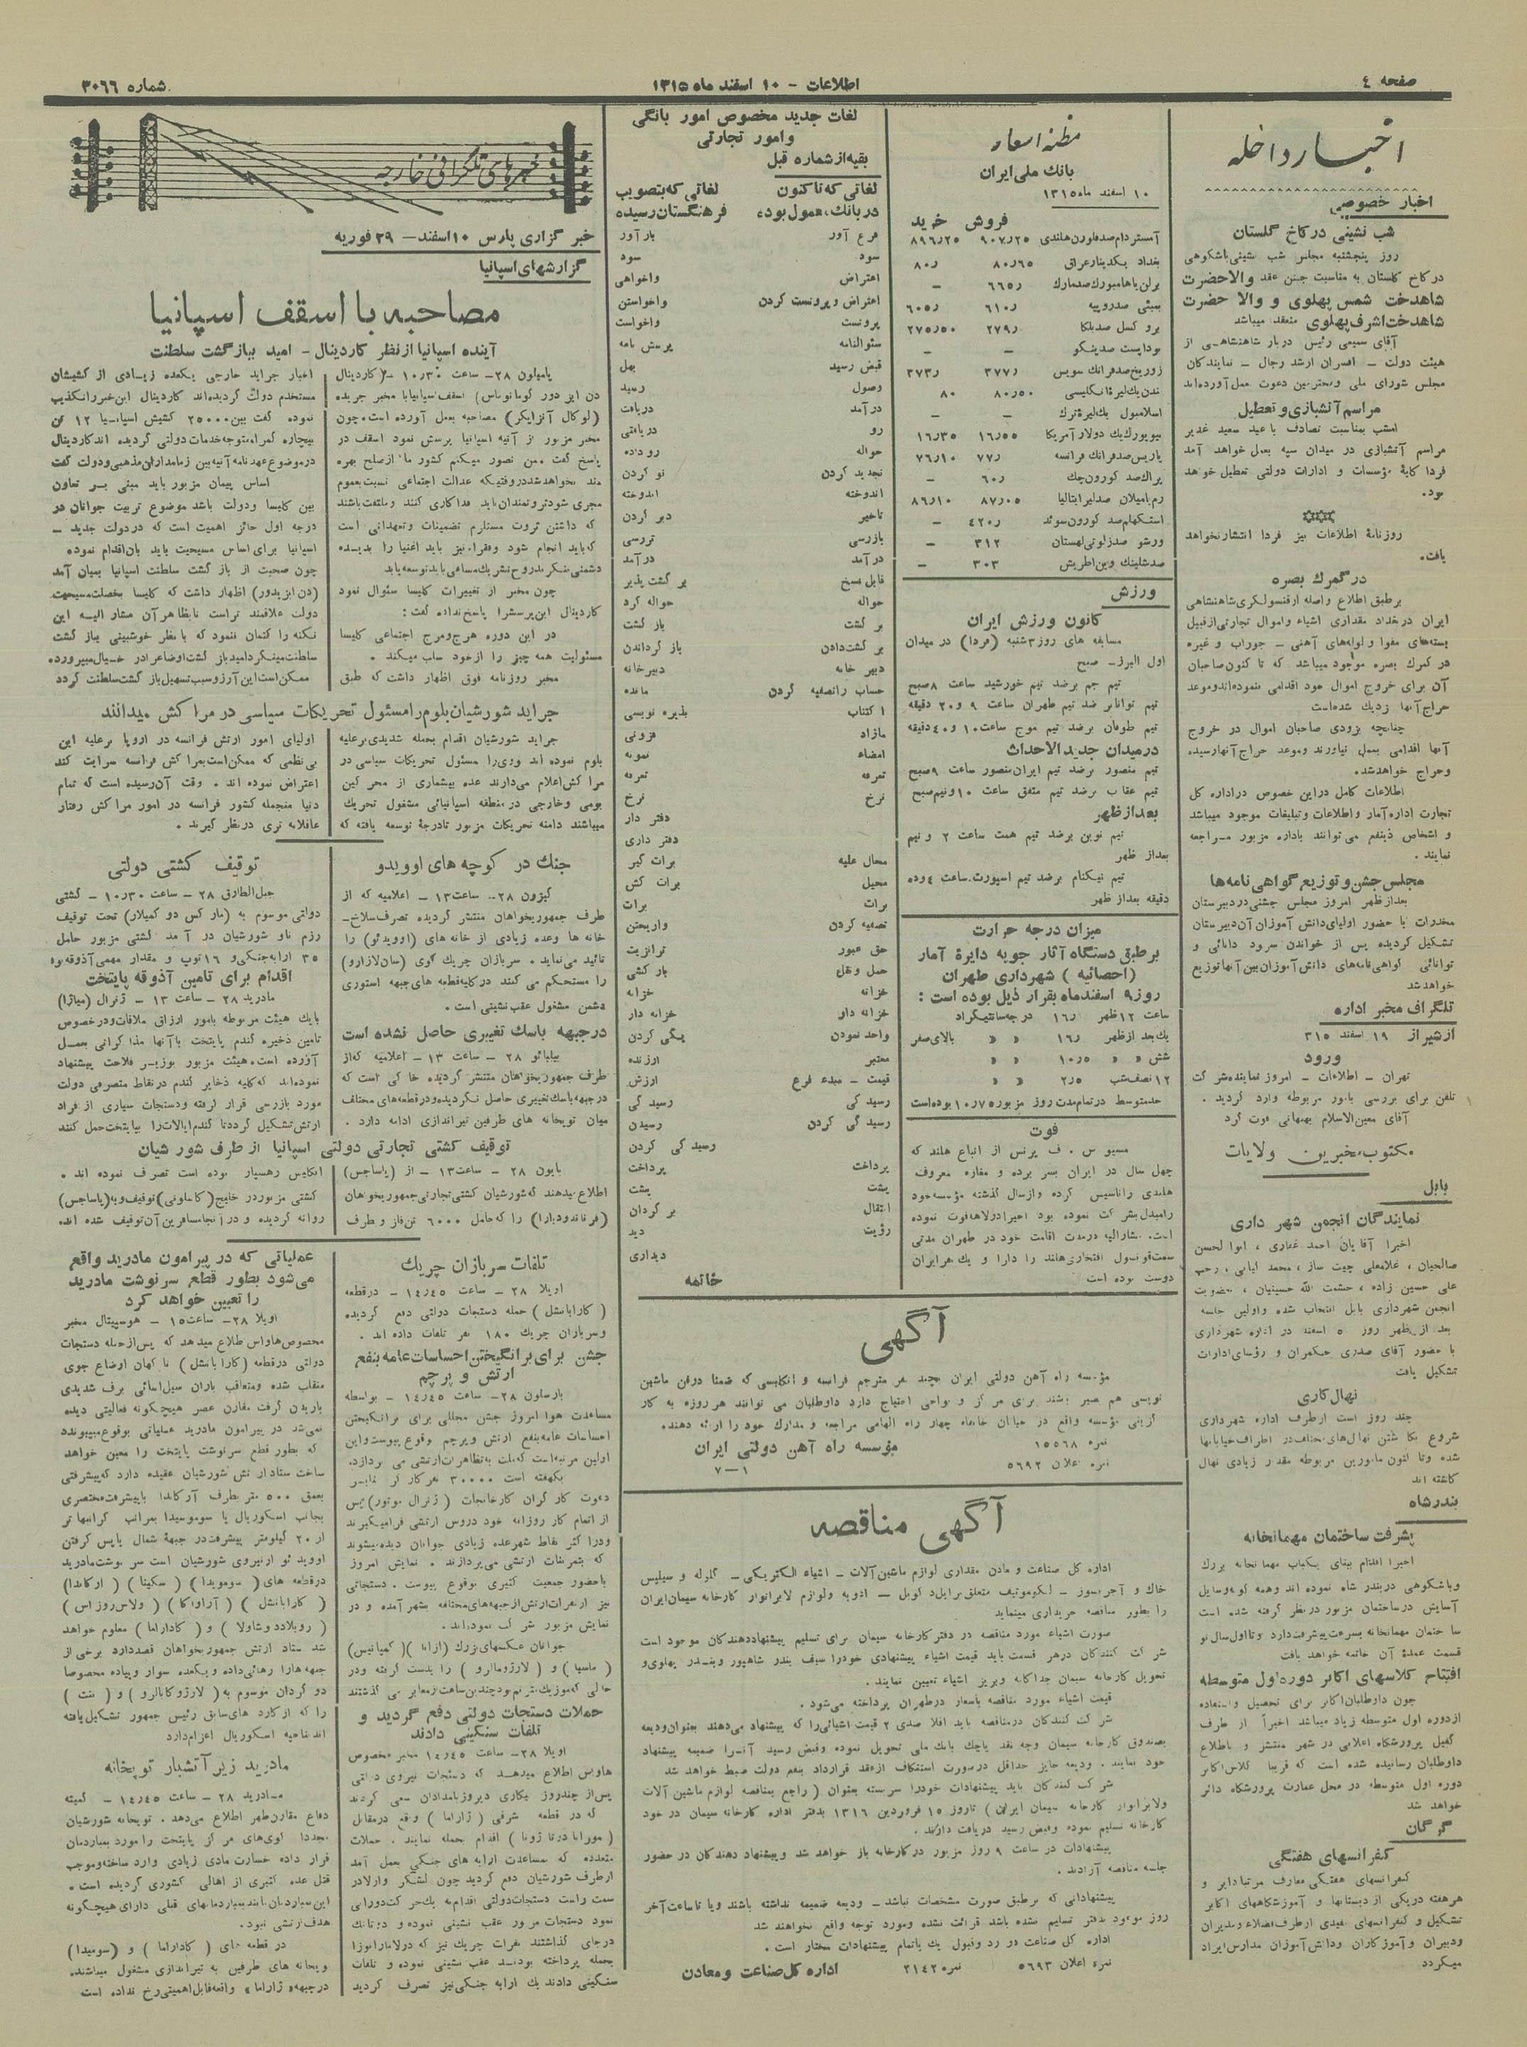 صفحه ٤
اطلاعات - ۱۰ اسفند ماه ۱۳۱۵
شماره ۳۰۶۶
اخبار داخله
اخبار خصوصی
شب نشینی در کاخ گلستان
روز پنجشنبه مجلس شب نشینی باشکوهی
در کاخ گلستان به مناسبت جشن عقد والاحضرت
شاهدخت شمس پهلوی و والا حضرت
شاهدخت اشرف پهلوی منعقد میباشد
آقای سمیعی رئیس دربار شاهنشاهی از
هیئت دولت - افسران ارشد رجال - نمایندگان
مجلس شورای ملی ومحترمین دعوت بعمل آورده‌اند
مراسم آتشبازی و تعطیل
امشب بمناسبت تصادف با عید سعید غدیر
مراسم آتشبازی در میدان سپه بعمل خواهد آمد
فردا کلیهٔ مؤسسات و ادارات دولتی تعطیل خواهد
بود.
روزنامهٔ اطلاعات نیز فردا انتشار نخواهد
یافت.
در گمرك بصره
برطبق اطلاع واصله از قنسولگری شاهنشاهی
ایران در بغداد مقداری اشیاء واموال تجارتی از قبیل
بسته‌های مقوا و لوله‌های آهنی - جوراب و غیره
در گمرك بصره موجود میباشد که تا کنون صاحبان
آن برای خروج اموال خود اقدامی ننموده‌اند وموعد
حراج آنها نزدیك شده‌است
چنانچه بزودی صاحبان اموال در خروج
آنها اقدامی بعمل نیاورند وموعد حراج آنها رسیده
وحراج خواهدشد.
اطلاعات کامل در این خصوص در اداره کل
تجارت اداره آمار و اطلاعات و تبلیغات موجود میباشد
و اشخاص ذینفع می توانند باداره مزبور مراجعه
نمایند.
مجلس جشن و توزیع گواهی نامه ها
بعد از ظهر امروز مجلس جشنی در دبیرستان
مخدرات با حضور اولیای دانش آموزان آن دبیرستان
تشکیل گردیده پس از خواندن سرود دانائی و
توانائی گواهی‌نامه‌های دانش آموزان بین آنها توزیع
خواهد شد
تلگراف مخبر اداره
از شیراز ۱۹ اسفند ۳۱۵
ورود
تهران - اطلاعات - امروز نماینده شرکت
تلفن برای بررسی بامور مربوطه وارد گردید.
آقای معین‌الاسلام بهبهانی فوت کرد
مکتوب مخبرین ولایات
بابل
نمایندگان انجمن شهر داری
اخیرا آقایان احمد غفاری، ابوالحسن
صالحیان، غلامعلی چیت ساز، محمد امانی، رجب
علی حسین زاده، حشمت الله حسینیان، بعضویت
انجمن شهرداری بابل انتخاب شده و اولین جلسه
بعد از ظهر روز ۵ اسفند در اداره شهرداری
با حضور آقای صدری حکمران و رؤسای ادارات
تشکیل یافت
نهال کاری
چند روز است از طرف اداره شهرداری
شروع بکاشتن نهال‌های مختلف در اطراف خیابانها
شده و تا کنون مأمورین مربوطه مقدار زیادی نهال
کاشته اند
بندر شاه
پیشرفت ساختمان مهمانخانه
اخیرا اقدام ببنای یکباب مهمانخانه بزرك
وباشکوهی در بندر شاه نموده اند وهمه گونه وسایل
آسایش در ساختمان مزبور در نظر گرفته شده است
ساختمان مهمانخانه بسرعت پیشرفت دارد و تا اول سال نو
قسمت عمدهٔ آن خاتمه خواهد یافت
افتتاح کلاسهای اکابر دوره اول متوسطه
چون داوطلبان اکابر برای تحصیل و استفاده
از دوره اول متوسطه زیاد میباشد اخیراً از طرف
کفیل پرورشگاه اعلامی در شهر منتشر و باطلاع
داوطلبان رسانیده شده است که قریبا کلاس اکابر
دوره اول متوسطه در محل عمارت پرورشگاه دائر
خواهد شد
گرگان
کنفرانسهای هفتگی
کنفرانسهای هفتگی معارف مرتبا دایر و
هر هفته در یکی از دبستانها و آموزشگاههای اکابر
تشکیل و کنفرانسهای مفیدی از طرف فضلاء و مدیران
ودبیران و آموزگاران و دانش آموزان مدارس ایراد
میگردد
مظنه اسعار
بانك ملی ایران
۱۰ اسفند ماه ۱۳۱۵
فروش خرید
آمستردام صد فلورن هلندی ۹۰۷٫۲۵ ۸۹۶٫۲۵
بغداد یکدینار عراق ۸۰٫۶۵ ۸۰٫
برلن یا هامبورك صد مارك ۶۶۵٫ -
بمبئی صد روپیه ۶۱۰٫ ۶۰۵٫
بروکسل صد بلگا ۲۷۹٫ ۲۷۵٫۵۰
بوداپست صد پنگو - -
زوریخ صد فرانك سویس ۳۷۷٫ ۳۷۳٫
لندن یك لیرهٔ انگلیسی ۸۰٫۵۰ ۸۰
اسلامبول یك لیرهٔ ترك - -
نیویورك یك دولار آمریکا ۱۶٫۵۵ ۱۶٫۳۵
پاریس صد فرانك فرانسه ۷۷٫ ۷۶٫۱۰
پراك صد کورون چك ۶۰٫ -
رم یا میلان صد لیر ایتالیا ۸۷٫۰۵ ۸۶٫۱۰
استکهلم صد کورون سوئد ۴۲۰٫ -
ورشو صد زلوتی لهستان ۳۱۲ -
صد شلینك وین اطریش ۳۰۳ -
ورزش
کانون ورزش ایران
مسابقه های روز ۳ شنبه (فردا) در میدان
اول البرز - صبح
تیم جم برضد تیم خورشید ساعت ۸ صبح
تیم توانا بر ضد تیم طهران ساعت ۹ و ۲۰ دقیقه
تیم طوفان برضد تیم موج ساعت ۱۰ و ۴۰ دقیقه
در میدان جدید الاحداث
تیم منصور برضد تیم ایران منصور ساعت ۹ صبح
تیم عقاب برضد تیم متفق ساعت ۱۰ و نیم صبح
بعد از ظهر
تیم نوین برضد تیم همت ساعت ۲ و نیم
بعد از ظهر
تیم نیکنام برضد تیم اسپورت ساعت ٤ و ده
دقیقه بعد از ظهر
میزان درجه حرارت
برطبق دستگاه آثار جویه دایرهٔ آمار
(احصائیه) شهرداری طهران
روز ۹ اسفندماه بقرار ذیل بوده است:
ساعت ۱۲ ظهر ۱۶٫ درجه سانتیگراد
یك بعد از ظهر ۱۶٫ » » بالای صفر
شش » ۱۰٫۵ » »
۱۲ نصف شب ۲٫۵ » »
حد متوسط در تمام مدت روز مزبور ۱۰٫۷۵ بوده است
فوت
مسیو س. ف پرنس از اتباع هلند که
چهل سال در ایران بسر برده و مغازه معروف
هلندی را تاسیس کرده و از سال گذشته مؤسسه خود
را مبدل بشرکت نموده بود اخیرا در لاهه فوت نموده
است. مشارالیه در مدت اقامت خود در طهران مدتی
سمت قونسول افتخاری هلند را دارا و یك نفر ایران
دوست بوده است
لغات جدید مخصوص امور بانگی
وامور تجارتی
بقیه از شماره قبل
لغاتی که تا کنون لغاتی که بتصویب
در بانك معمول بوده فرهنگستان رسیده
فرع آور بارآور
سود سود
اعتراض واخواهی
اعتراض و پروتست کردن واخواستن
پروتست واخواست
سئوالنامه پرسش نامه
قبض رسید بهل
وصول رسید
درآمد دریافت
رو دریافتی
حواله رو داده
تجدید کردن نو کردن
اندوخته اندوخته
تاخیر دیر کردن
بازرسی بررسی
درآمد درآمد
قابل فسخ بر گشت پذیر
حواله حواله کرد
بر گشت باز گشت
بر گشت دادن باز گرداندن
دبیر خانه دبیرخانه
حساب را تصفیه کردن مانده
اکتتاب پذیره نویسی
مازاد فزونی
امضاء نمونه
تعرفه تعرفه
نرخ نرخ
دفتر دار
دفتر داری
محال علیه برات گیر
محیل برات کش
برات برات
تصفیه کردن واریختن
حق عبور ترانزیت
حمل و نقل بارکشی
خزانه خزانه
خزانه دار خزانه دار
واحد نمودن یکی کردن
معتبر ارزنده
قیمت - مبدء فرع ارزش
رسید گی رسید گی
رسید گی کردن رسیدن
رسید گی کردن
پرداخت پرداخت
پشت پشت
انتقال بر گردان
رؤیت دید
دیداری
خاتمه
آگهی
مؤسسه راه آهن دولتی ایران بچند نفر مترجم فرانسه و انگلیسی که ضمنا در فن ماشین
نویسی هم بصیر باشند برای مرکز و نواحی احتیاج دارد داوطلبان می توانند هر روزه به کار
گزینی مؤسسه واقع در خیابان خانقاه چهار راه الهامی مراجعه و مدارك خود را ارائه دهند.
نمره ۱۵۵۶۸ مؤسسه راه آهن دولتی ایران
نمره اعلان ۵۶۹۲ ۱-۷
آگهی مناقصه
اداره کل صناعت و معادن مقداری لوازم ماشین آلات - اشیاء الکتریکی - گلوله و سیلپس
خاك و آجر نسوز - لکوموتیف متعلق بریل دکویل - ادویه و لوازم لابراتوار کارخانه سیمان ایران
را بطور مناقصه خریداری مینماید
صورت اشیاء مورد مناقصه در دفتر کارخانه سیمان برای تسلیم پیشنهاد دهندگان موجود است
شرکت کنندگان در هر قسمت باید قیمت اشیاء پیشنهادی خود را سیف بندر شاهپور و بندر پهلوی و
تحویل کارخانه سیمان جداگانه و بریز اشیاء تعیین نمایند.
قیمت اشیاء مورد مناقصه باسعار در طهران پرداخته می‌شود.
شرکت کنندگان در مناقصه باید اقلا صدی ۲ قیمت اشیائی را که پیشنهاد می‌دهند بعنوان ودیعه
بصندوق کارخانه سیمان وجه نقد یا چك بانك ملی تحویل نموده و قبض رسید آنرا ضمیمه پیشنهاد
خود نمایند. ودیعه حایز حداقل در صورت استنکاف از عقد قرارداد بنفع دولت ضبط خواهد شد
شرکت کنندگان باید پیشنهادات خود را سربسته بعنوان (راجع بمناقصه لوازم ماشین آلات
ولابراتوار کارخانه سیمان ایران) تا روز ۱۵ فروردین ۱۳۱۶ بدفتر اداره کارخانه سیمان در خود
کارخانه تسلیم نموده وقبض رسید دریافت دارند.
پیشنهادات در ساعت ۹ روز مزبور در کارخانه باز خواهد شد و پیشنهاد دهندگان در حضور
جلسه مناقصه آزادند.
پیشنهاداتی که برطبق صورت مشخصات نباشد - ودیعه ضمیمه نداشته باشند و یا تا ساعت آخر
روز موعود بدفتر تسلیم نشده باشد قرائت نشده ومورد توجه واقع نخواهند شد
اداره کل صناعت در رد و قبول یك یا تمام پیشنهادات مختار است.
نمره اعلان ۵۶۹۳ نمره ۲۱۴۲ اداره کل صناعت و معادن
خبرهای تلگرافی خارجه
خبر گزاری پارس ۱۰ اسفند - ۲۹ فوریه
گزارشهای اسپانیا
مصاحبه با اسقف اسپانیا
آینده اسپانیا از نظر کاردینال - امید ببازگشت سلطنت
پامپلون ۲۸ - ساعت ۱۰٫۳۰ - کاردینال
دن ایزدور گوما توماس) اسقف اسپانیا با مخبر جریده
(لوکال آنزایگر) مصاحبه بعمل آورده است. چون
مخبر مزبور از آتیه اسپانیا پرسش نمود اسقف در
پاسخ گفت. من تصور میکنم کشور ما از صلح بهره
مند نخواهد شد در وقتیکه عدالت اجتماعی نسبت بعموم
مجری شود ثروتمندان باید فداکاری کنند وملتفت باشند
که داشتن ثروت مستلزم تضمینات و تعهداتی است
که باید انجام شود وفقرا نیز باید اغنیا را بدیده
دشمنی ننگرند روح تشریك مساعی باید توسعه یابد
چون مخبر از تغییرات کلیسا سئوال نمود
کاردینال این پرسش را پاسخ نداده گفت:
در این دوره هرج و مرج اجتماعی کلیسا
مسئولیت همه چیز را از خود سلب میکند.
مخبر روزنامه فوق اظهار داشت که طبق
اخبار جراید خارجی یکعده زیادی از کشیشان
مستخدم دولت گردیده‌اند کاردینال این خبر را تکذیب
نموده گفت بین ۲۵۰۰۰ کشیش اسپانیا ۱۲ تن
بیچاره گمراه متوجه خدمات دولتی گردیده اند کاردینال
در موضوع عهدنامه آتیه بین زمامداران مذهبی ودولت گفت
اساس پیمان مزبور باید مبنی بر تعاون
بین کلیسا ودولت باشد موضوع تربیت جوانان در
درجه اول حائز اهمیت است که در دولت جدید -
اسپانیا برای اساس مسیحیت باید بآن اقدام نموده
چون صحبت از باز گشت سلطنت اسپانیا بمیان آمد
(دن ایزیدور) اظهار داشت که کلیسا بخصلت مسیحیت
دولت علاقمند تر است با تظاهر آن مشار الیه این
نکته را کتمان ننمود که با نظر خوشبینی بباز گشت
سلطنت مینگرد امید باز گشت اوضاع را در خیال میپرورد.
ممکن است این آرزو سبب تسهیل باز گشت سلطنت گردد
جراید شورشیان بلوم را مسئول تحریکات سیاسی در مراکش میدانند
جراید شورشیان اقدام بحمله شدیدی برعلیه
بلوم نموده اند ووی را مسئول تحریکات سیاسی در
مراکش اعلام می‌دارند عده بیشماری از محرکین
بومی وخارجی در منطقه اسپانیائی مشغول تحریك
میباشند دامنه تحریکات مزبور تا درجهٔ توسعه یافته که
اولیای امور ارتش فرانسه در اروپا برعلیه این
بی‌نظمی که ممکن است بمراکش فرانسه سرایت کند
اعتراض نموده اند. وقت آن رسیده است که تمام
دنیا منجمله کشور فرانسه در امور مراکش رفتار
عاقلانه تری در نظر گیرند.
جنك در کوچه های اوویدو
گیژون ۲۸ - ساعت ۱۳ - اعلامیه که از
طرف جمهوریخواهان منتشر گردیده تصرف سلاخ-
خانه ها وعده زیادی از خانه های (اوویدو) را
تائید می‌نماید. سربازان چریك کوی (سان‌لازارو)
را مستحکم می کنند در کلیه قطعه های جبهه استوری
دشمن مشغول عقب نشینی است.
در جبهه باسك تغییری حاصل نشده است
بیلبائو ۲۸ - ساعت ۱۳ - اعلامیه که از
طرف جمهوریخواهان منتشر گردیده حاکی است که
در جبهه باسك تغییری حاصل نگردیده و در قطعه‌های مختلف
میان توپخانه های طرفین تیراندازی ادامه دارد.
توقیف کشتی دولتی
جبل‌الطارق ۲۸ - ساعت ۱۰٫۳۰ - کشتی
دولتی موسوم به (مارکس دو کمیلاز) تحت توقیف
رزم ناو شورشیان در آمد کشتی مزبور حامل
۳۵ ارابه جنگی و ۱۶ توپ و مقدار مهمی آذوقه بود
اقدام برای تامین آذوقه پایتخت
مادرید ۲۸ - ساعت ۱۳ - ژنرال (میاژا)
با یك هیئت مربوطه بامور ارزاق ملاقات و در خصوص
تامین ذخیره گندم پایتخت با آنها مذاکراتی بعمل
آورده است. هیئت مزبور بوزیر فلاحت پیشنهاد
نموده‌اند که کلیه ذخایر گندم در نقاط متصرفی دولت
مورد بازرسی قرار گرفته و دستجات سیاری از افراد
ارتش تشکیل گردد تا گندم ایالات را بپایتخت حمل کنند
توقیف کشتی تجارتی دولتی اسپانیا از طرف شور شیان
بایون ۲۸ - ساعت ۱۳ - از (پاساجس)
اطلاع میدهند که شورشیان کشتی تجارتی جمهوریخواهان
را که حامل ۶۰۰۰ تن فاز و طرف
انگلیس رهسپار بوده است تصرف نموده اند.
کشتی مزبور در خلیج (گاسکونی) توقیف و به (پاساجس)
روانه گردیده و در آنجا مسافرین آن توقیف شده اند.
تلفات سربازان چریك
اویلا ۲۸ - ساعت ۱۴٫۴۵ - در قطعه
(کارابانشل) حمله دستجات دولتی دفع گردیده
وسربازان چریك ۱۸۰ نفر تلفات داده اند.
جشن برای برانگیختن احساسات عامه بنفع
ارتش و پرچم
بارسلون ۲۸ - ساعت ۱۴٫۴۵ - بواسطه
مساعدت هوا امروز جشن مجللی برای برانگیختن
احساسات عامه بنفع ارتش و پرچم وقوع پیوست و این
اولین مرتبه است که ملت به تظاهرات ارتشی می پردازد.
یکهفته است ۳۰۰۰۰ نفر کارگر بنابر
دعوت کارگران کارخانجات (ژنرال موتور) پس
از اتمام کار روزانه خود دروس ارتشی فرا میگیرند
و در اکثر نقاط شهر عده زیادی جوانان دیده میشوند
که بتمرینات ارتشی می‌پردازند. نمایش امروز
با حضور جمعیت کثیری بوقوع پیوست. دستجاتی
نیز از نفرات ارتش از جبهه‌های مختلفه بشهر آمده و در
نمایش مزبور شرکت نموده‌اند.
جوانان عکسهای بزرك
را بدست گرفته و در
حالی که موزیك مترنم بود چندین ساعت از معابر می گذشتند
حملات دستجات دولتی دفع گردید و
تلفات سنگینی دادند
اویلا ۲۸ - ساعت ۱۴٫۴۵ مخبر مخصوص
هاواس اطلاع میدهد که دستجات نیروی دولتی
پس از چند روز بیکاری دیروز بامدادان سعی کردند
که در قطعه شرقی (ژاراما) واقع در مقابل
(مورا تا در تا ژونا) اقدام بحمله نمایند. حملات
متعدده که بمساعدت ارابه های جنگی بعمل آمد
از طرف شورشیان دفع گردید چون لشکر وارلا در
سمت راست دستجات دولتی اقدام به یك حرکت دورانی
نمود دستجات مزبور عقب نشینی نموده و دو تانك
در جای گذاشتند نفرات چریك نیز که در لاماراموزا
بحمله پرداخته بودند عقب نشینی نموده و تلفات
سنگینی دادند یك ارابه جنگی نیز تصرف گردید
عملیاتی که در پیرامون مادرید واقع
می‌شود بطور قطع سرنوشت مادرید
را تعیین خواهد کرد
اویلا ۲۸ - ساعت ۱۵ - هوسپیتال مخبر
مخصوص هاواس اطلاع میدهد که پس از حمله دستجات
دولتی در قطعه (کارابانشل) ناگهان اوضاع جوی
منقلب شده و متعاقب باران سیل‌آسائی برف شدیدی
باریدن گرفت مقارن عصر هیچگونه فعالیتی دیده
نمی‌شد در پیرامون مادرید عملیاتی بوقوع میپیوندد
که بطور قطع سرنوشت پایتخت را معین خواهد
ساخت ستاد ارتش شورشیان عقیده دارد که پیشرفتی
بعمق ۵۰۰ متر بطرف آرگاندا با پیشرفت مختصری
بجانب اسکوریال یا سوموسیدا بمراتب گرانبها تر
از ۲۰ کیلومتر پیشرفت در جبههٔ شمال یا پس گرفتن
اووید ئو از نیروی شورشیان است سرنوشت مادرید
در قطعه های (سومویدا) (سکینا) (ارگاندا)
(کارابانشل) (آراواکا) (ولاس روزاس)
(روبلادد و شاولا) و (کاداراما) معلوم خواهد
شد ستاد ارتش جمهوریخواهان قصد دارد برخی از
جبهه هارا رهائی داده و یکعده سوار وپیاده مخصوصا
دو گردان موسوم به (لارژوکابالرو) و (منت)
را که از کارد های سابق رئیس جمهور تشکیل یافته
اند بناحیه اسکوریال اعزام دارد
مادرید زیر آتشبار توپخانه
مادرید ۲۸ - ساعت ۱۴٫۴۵ - کمیته
دفاع مقارن ظهر اطلاع می‌دهد. توپخانه شورشیان
مجددا کوی‌های مرکز پایتخت را مورد بمباردمان
قرار داده خسارت مادی زیادی وارد ساخته وموجب
قتل عده کثیری از اهالی کشوری گردیده است.
این بمباردمان مانند بمباردمانهای قبلی دارای هیچگونه
هدف ارتشی نبود.
در قطعه های (کاداراما) و (سومیدا)
توپخانه های طرفین به تیراندازی مشغول میباشند.
در جبهه «ژاراما» واقعه قابل اهمیتی رخ نداده است